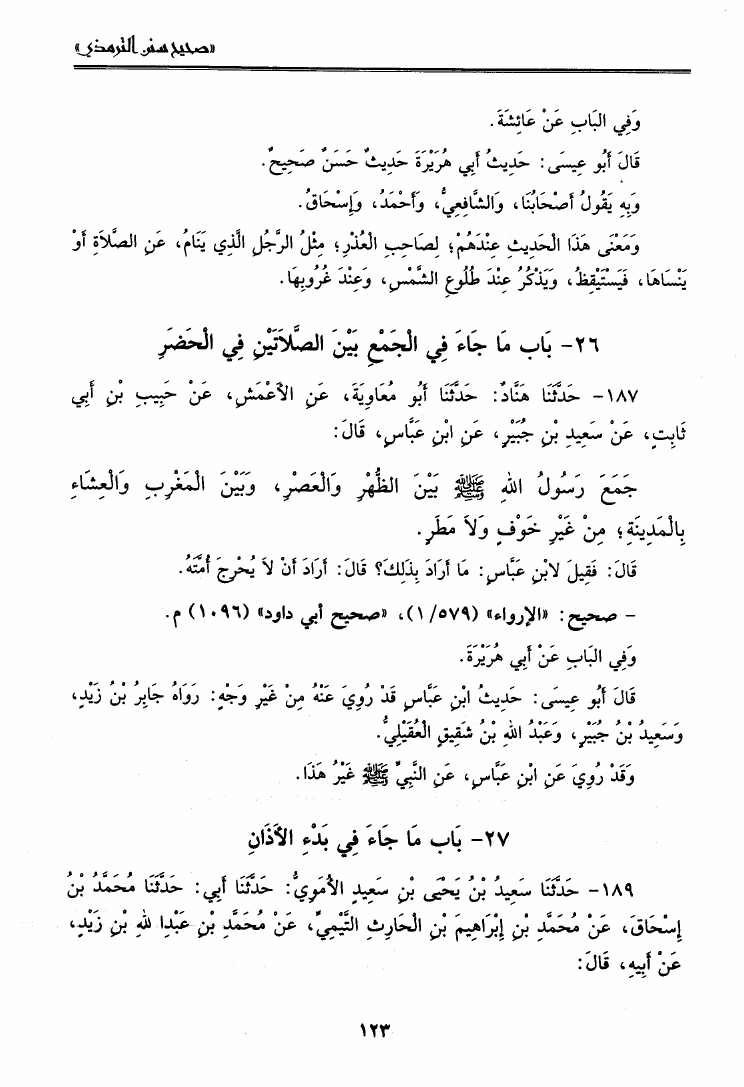 «صحيح سنن الترمذي»
وَفِي البَابِ عَنْ عَائِشَةَ.
قَالَ أَبُو عِيسَى: حَدِيثُ أَبِي هُرَيْرَةَ حَدِيثٌ حَسَنٌ صَحِيحٌ.
وَبِهِ يَقُولُ أَصْحَابُنَا، وَالشَّافِعِيُّ، وَأَحْمَدُ، وَإِسْحَاقُ.
وَمَعْنَى هَذَا الْحَدِيثِ عِنْدَهُمْ؛ لِصَاحِبِ الْعُذْرِ؛ مِثْلُ الرَّجُلِ الَّذِي يَنَامُ، عَنِ الصَّلَاةِ أَوْ
يَنْسَاهَا، فَيَسْتَيْقِظُ، وَيَذْكُرُ عِنْدَ طُلُوعِ الشَّمْسِ، وَعِنْدَ غُرُوبِهَا.
٢٦- بَاب مَا جَاءَ فِي الْجَمْعِ بَيْنَ الصَّلَاتَيْنِ فِي الْحَضَرِ
١٨٧- حَدَّثَنَا هَنَّادٌ: حَدَّثَنَا أَبُو مُعَاوِيَةَ، عَنِ الأَعْمَشِ، عَنْ حَبِيبِ بْنِ أَبِي
ثَابِتٍ، عَنْ سَعِيدِ بْنِ جُبَيْرٍ، عَنِ ابْنِ عَبَّاسٍ، قَالَ:
جَمَعَ رَسُولُ اللهِ ﷺ بَيْنَ الظُّهْرِ وَالْعَصْرِ، وَبَيْنَ الْمَغْرِبِ وَالْعِشَاءِ
بِالْمَدِينَةِ؛ مِنْ غَيْرِ خَوْفٍ وَلَا مَطَرٍ.
قَالَ: فَقِيلَ لابْنِ عَبَّاسٍ: مَا أَرَادَ بِذَلِكَ؟ قَالَ: أَرَادَ أَنْ لَا يُحْرِجَ أُمَّتَهُ.
- صحيح: «الإرواء» (١/٥٧٩)، «صحيح أبي داود» (١٠٩٦) م.
وَفِي البَابِ عَنْ أَبِي هُرَيْرَةَ.
قَالَ أَبُو عِيسَى: حَدِيثُ ابْنِ عَبَّاسٍ قَدْ رُوِيَ عَنْهُ مِنْ غَيْرِ وَجْهٍ: رَوَاهُ جَابِرُ بْنُ زَيْدٍ،
وَسَعِيدُ بْنُ جُبَيْرٍ، وَعَبْدُ اللهِ بْنُ شَقِيقٍ الْعُقَيْلِيُّ.
وَقَدْ رُوِيَ عَنِ ابْنِ عَبَّاسٍ، عَنِ النَّبِيِّ ﷺ غَيْرُ هَذَا.
٢٧- بَاب مَا جَاءَ فِي بَدْءِ الأَذَانِ
١٨٩- حَدَّثَنَا سَعِيدُ بْنُ يَحْيَى بْنِ سَعِيدٍ الأُمَوِيُّ: حَدَّثَنَا أَبِي: حَدَّثَنَا مُحَمَّدُ بْنُ
إِسْحَاقَ، عَنْ مُحَمَّدِ بْنِ إِبْرَاهِيمَ بْنِ الْحَارِثِ التَّيْمِيِّ، عَنْ مُحَمَّدِ بْنِ عَبْدِا للهِ بْنِ زَيْدٍ،
عَنْ أَبِيهِ، قَالَ:
١٢٣